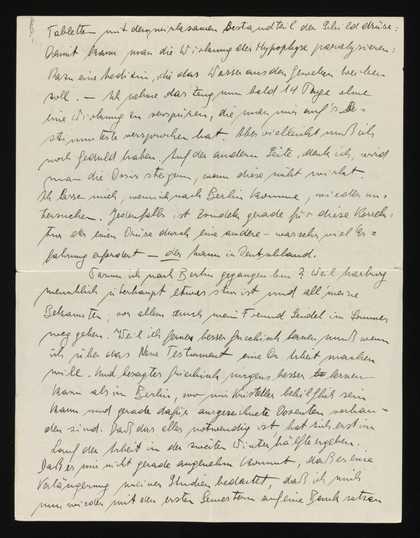 Tabletten mit dem wirksamen Bestandteil der Schilddrüse:
Damit kann man die Wirkung der Hypophyse paralysieren.
Dazu eine Medizin, die das Wasser aus den Geweben treiben
soll. — Ich nehme das Zeug nun bald 14 Tage ohne
eine Wirkung zu verspüren, die man mir auf's Be-
stimmteste versprochen hat. Aber vielleicht muß ich
noch Geduld haben. Auf der andern Seite, denk ich, wird
man die Dosis steigern, wenn diese nicht wirkt.
Ich lasse mich, wenn ich nach Berlin komme, wieder un-
tersuchen. Jedenfalls ist gerade für diese Korrek-
tur der einen Drüse durch eine andere wahrsch. viel Er-
fahrung erfordert — der kann in Deutschland.
Warum ich nach Berlin gegangen bin? Weil Marburg
menschlich überhaupt etwas stur ist und all meine
Bekannten, vor allem auch mein Freund Seidel im Sommer
weggehen. Weil ich ferner besser griechisch lernen muß, wenn
ich über das Neue Testament eine Arbeit machen
will. Und besagtes Griechisch nirgens besser lernen
kann als in Berlin, wo mir Kristeller behilflich sein
kann und gerade dafür ausgezeichnete Dozenten vorhan-
den sind. Daß das alles notwendig ist hat sich erst im
Lauf der Arbeit in der zweiten Winterhälfte ergeben.
Daß es mir nicht gerade angenehm kommt, daß es eine
Verlängerung meiner Studien bedeutet, daß ich mich
nun wieder mit den ersten Semestern auf eine Bank setzen